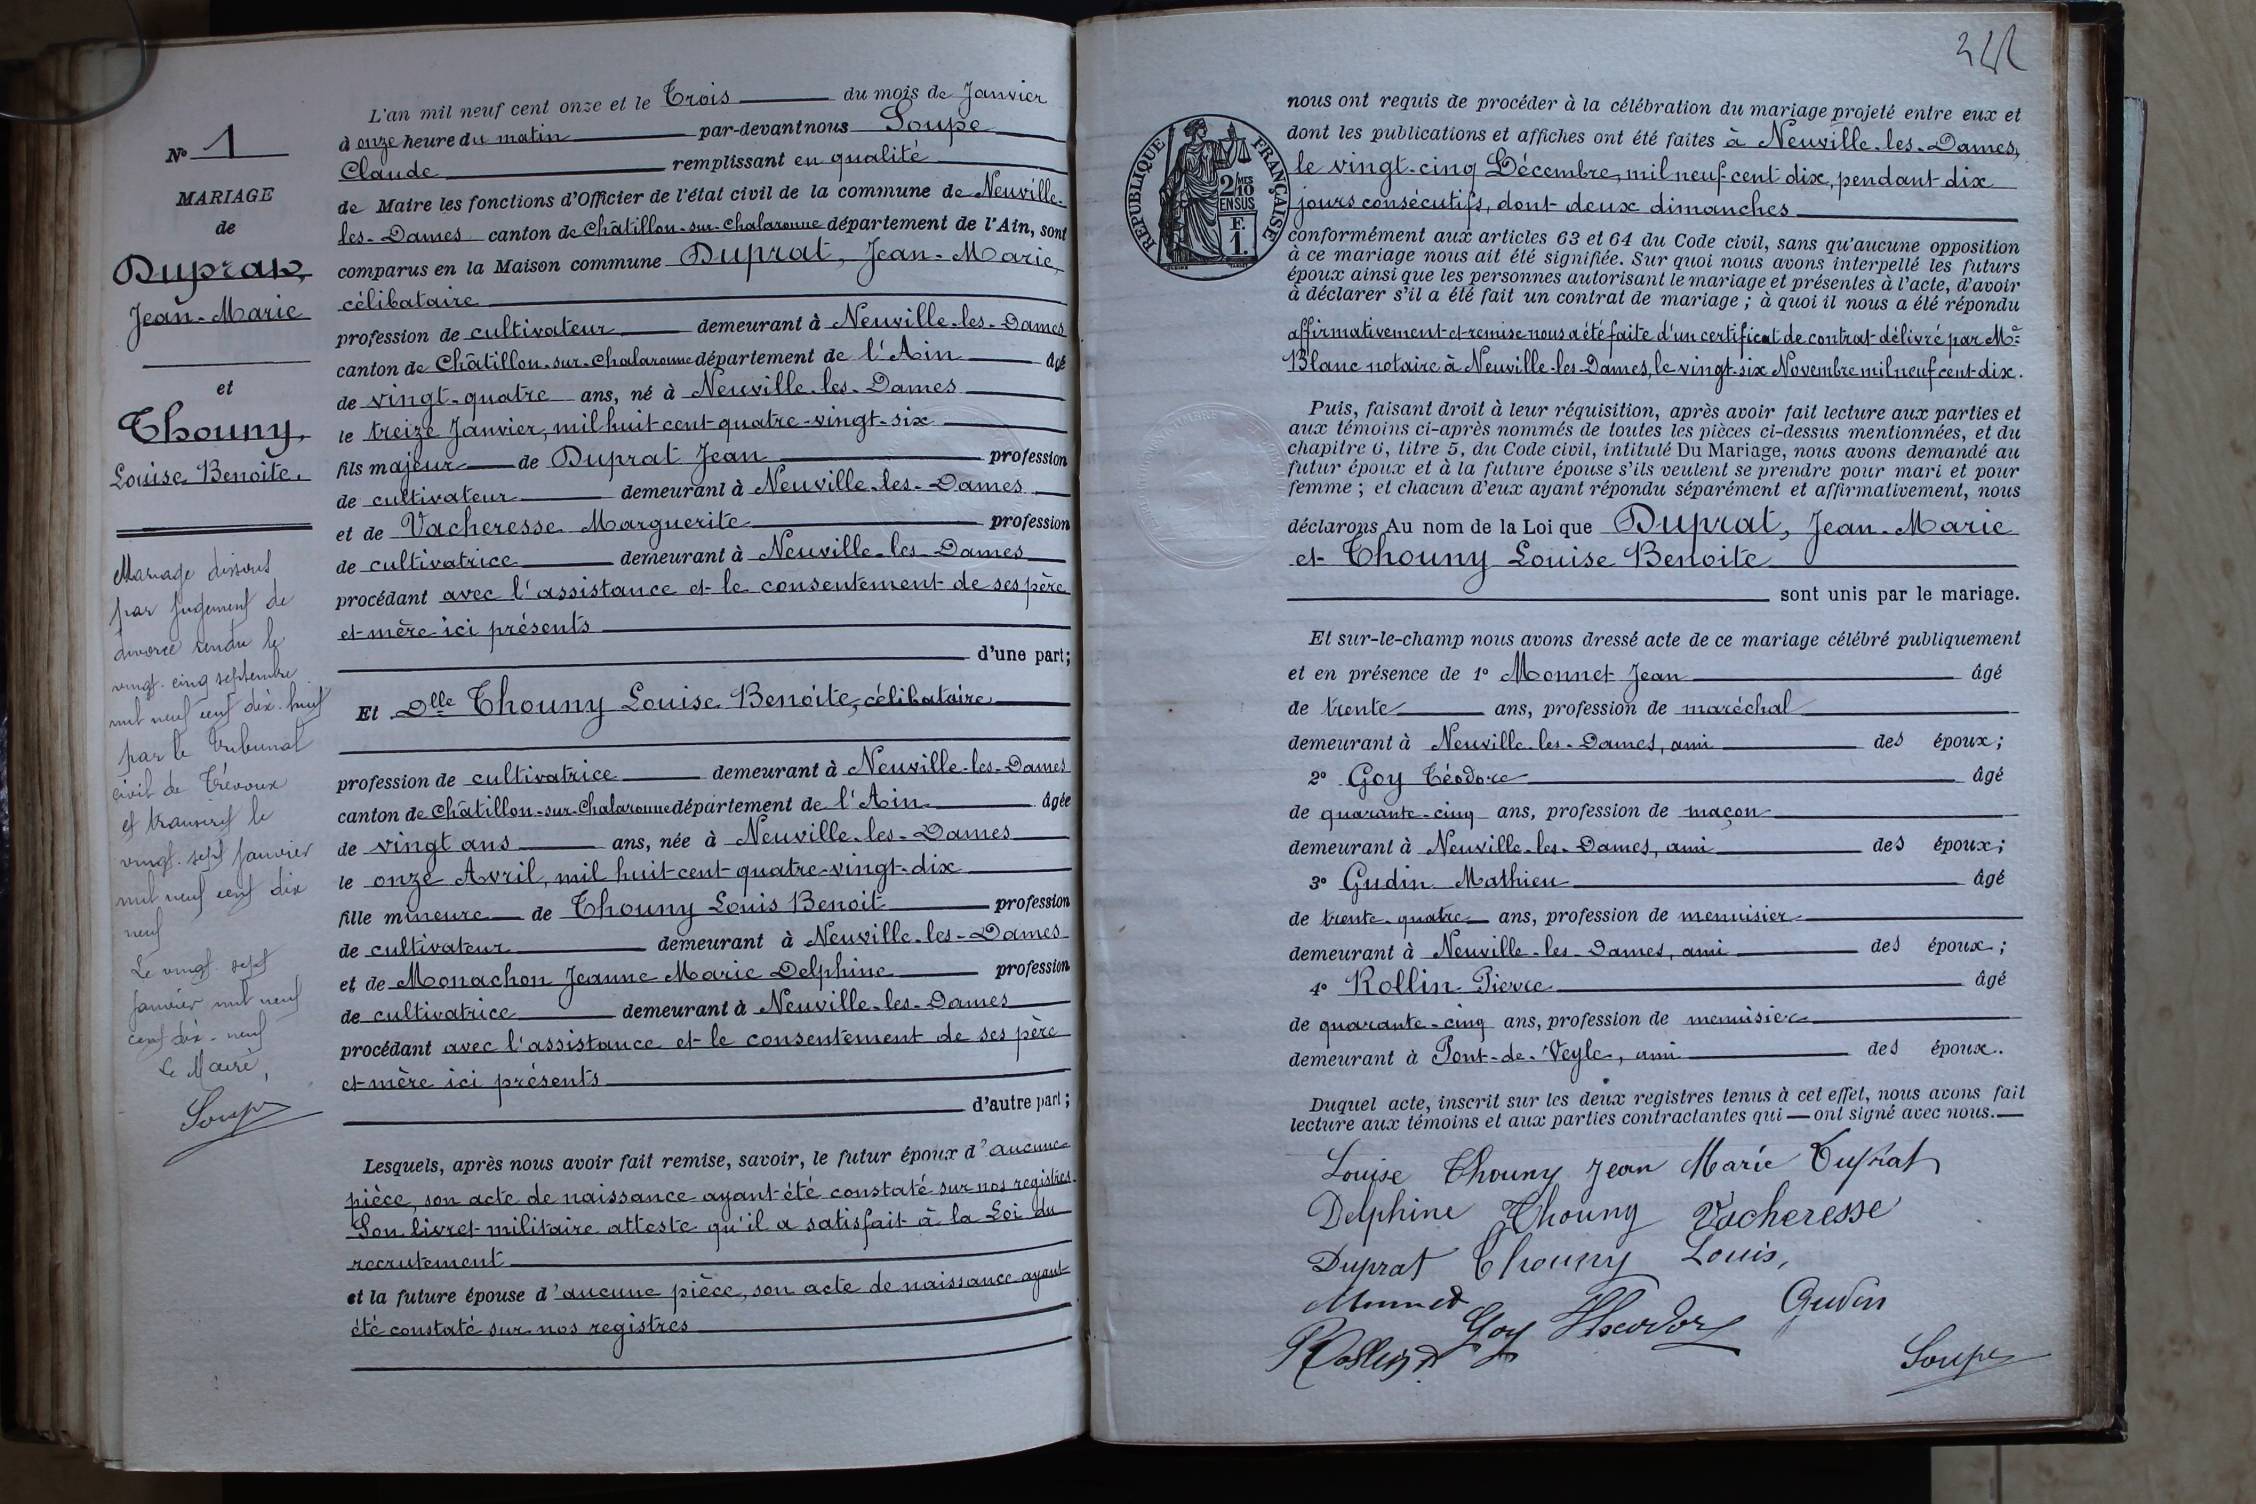 N° 1
MARIAGE
de
Duprat,
Jean-Marie
et
Thouny,
Louise Benoite.
Mariage dissous
par jugement de
divorce rendu le
vingt-cinq septembre
mil neuf cent dix-huit
par le Tribunal
civil de Trévoux
et transcrit le
vingt-sept janvier
mil neuf cent dix
neuf
Le vingt sept
janvier mil neuf
cent dix-neuf
Le Maire,
Soupe
L'an mil neuf cent onze et le Trois du mois de Janvier
à onze heure du matin par-devant nous Soupe
Claude remplissant en qualité
de Maire les fonctions d'Officier de l'état civil de la commune de Neuville-
les-Dames canton de Châtillon-sur-Chalaronne département de l'Ain, sont
comparus en la Maison commune Duprat, Jean-Marie,
célibataire
profession de cultivateur demeurant à Neuville-les-Dames
canton de Châtillon-sur-Chalaronne département de l'Ain âgé
de vingt-quatre ans, né à Neuville-les-Dames
le treize Janvier, mil huit-cent-quatre-vingt-six
fils majeur de Duprat Jean profession
de cultivateur demeurant à Neuville-les-Dames
et de Vacheresse Marguerite profession
de cultivatrice demeurant à Neuville-les-Dames
procédant avec l'assistance et le consentement de ses père
et mère ici présents
d'une part;
Et Dlle Thouny Louise Benoite, célibataire
profession de cultivatrice demeurant à Neuville-les-Dames
canton de Châtillon-sur-Chalaronne département de l'Ain âgée
de vingt ans ans, née à Neuville-les-Dames
le onze Avril, mil huit-cent-quatre-vingt-dix
fille mineure de Thouny Louis Benoit profession
de cultivateur demeurant à Neuville-les-Dames
et de Monachon Jeanne Marie Delphine profession
de cultivatrice demeurant à Neuville-les-Dames
procédant avec l'assistance et le consentement de ses père
et mère ici présents
d'autre part;
Lesquels, après nous avoir fait remise, savoir, le futur époux d'aucune
pièce, son acte de naissance ayant été constaté sur nos registres.
Son livret militaire atteste qu'il a satisfait à la Loi du
recrutement
et la future épouse d'aucune pièce, son acte de naissance ayant
été constaté sur nos registres
RÉPUBLIQUE FRANÇAISE
2/MES
10
EN SUS
F.
1.
nous ont requis de procéder à la célébration du mariage projeté entre eux et
dont les publications et affiches ont été faites à Neuville-les-Dames,
le vingt-cinq Décembre, mil neuf-cent dix, pendant dix
jours consécutifs, dont deux dimanches
conformément aux articles 63 et 64 du Code civil, sans qu'aucune opposition
à ce mariage nous ait été signifiée. Sur quoi nous avons interpellé les futurs
époux ainsi que les personnes autorisant le mariage et présentes à l'acte, d'avoir
à déclarer s'il a été fait un contrat de mariage; à quoi il nous a été répondu
affirmativement et remise nous a été faite d'un certificat de contrat délivré par Me
Blanc notaire à Neuville-les-Dames, le vingt-six Novembre mil neuf cent-dix.
Puis, faisant droit à leur réquisition, après avoir fait lecture aux parties et
aux témoins ci-après nommés de toutes les pièces ci-dessus mentionnées, et du
chapitre 6, titre 5, du Code civil, intitulé Du Mariage, nous avons demandé au
futur époux et à la future épouse s'ils veulent se prendre pour mari et pour
femme; et chacun d'eux ayant répondu séparément et affirmativement, nous
déclarons Au nom de la Loi que Duprat, Jean-Marie
et Thouny Louise Benoite
sont unis par le mariage.
Et sur-le-champ nous avons dressé acte de ce mariage célébré publiquement
et en présence de 1° Monnet Jean âgé
de trente ans, profession de maréchal
demeurant à Neuville-les-Dames, ami des époux;
2° Goy Téodore âgé
de quarante-cinq ans, profession de maçon
demeurant à Neuville-les-Dames, ami des époux;
3° Gudin Mathieu âgé
de trente-quatre ans, profession de menuisier
demeurant à Neuville-les-Dames, ami des époux;
4° Rollin Pierre âgé
de quarante-cinq ans, profession de menuisier
demeurant à Pont-de-Veyle, ami des époux.
Duquel acte, inscrit sur les deux registres tenus à cet effet, nous avons fait
lecture aux témoins et aux parties contractantes qui ont signé avec nous.
Louise Thouny Jean Marie Duprat
Delphine Thouny Vacheresse
Duprat Thouny Louis,
Monnet Goy Théodore Gudin
Rollin P Soupe